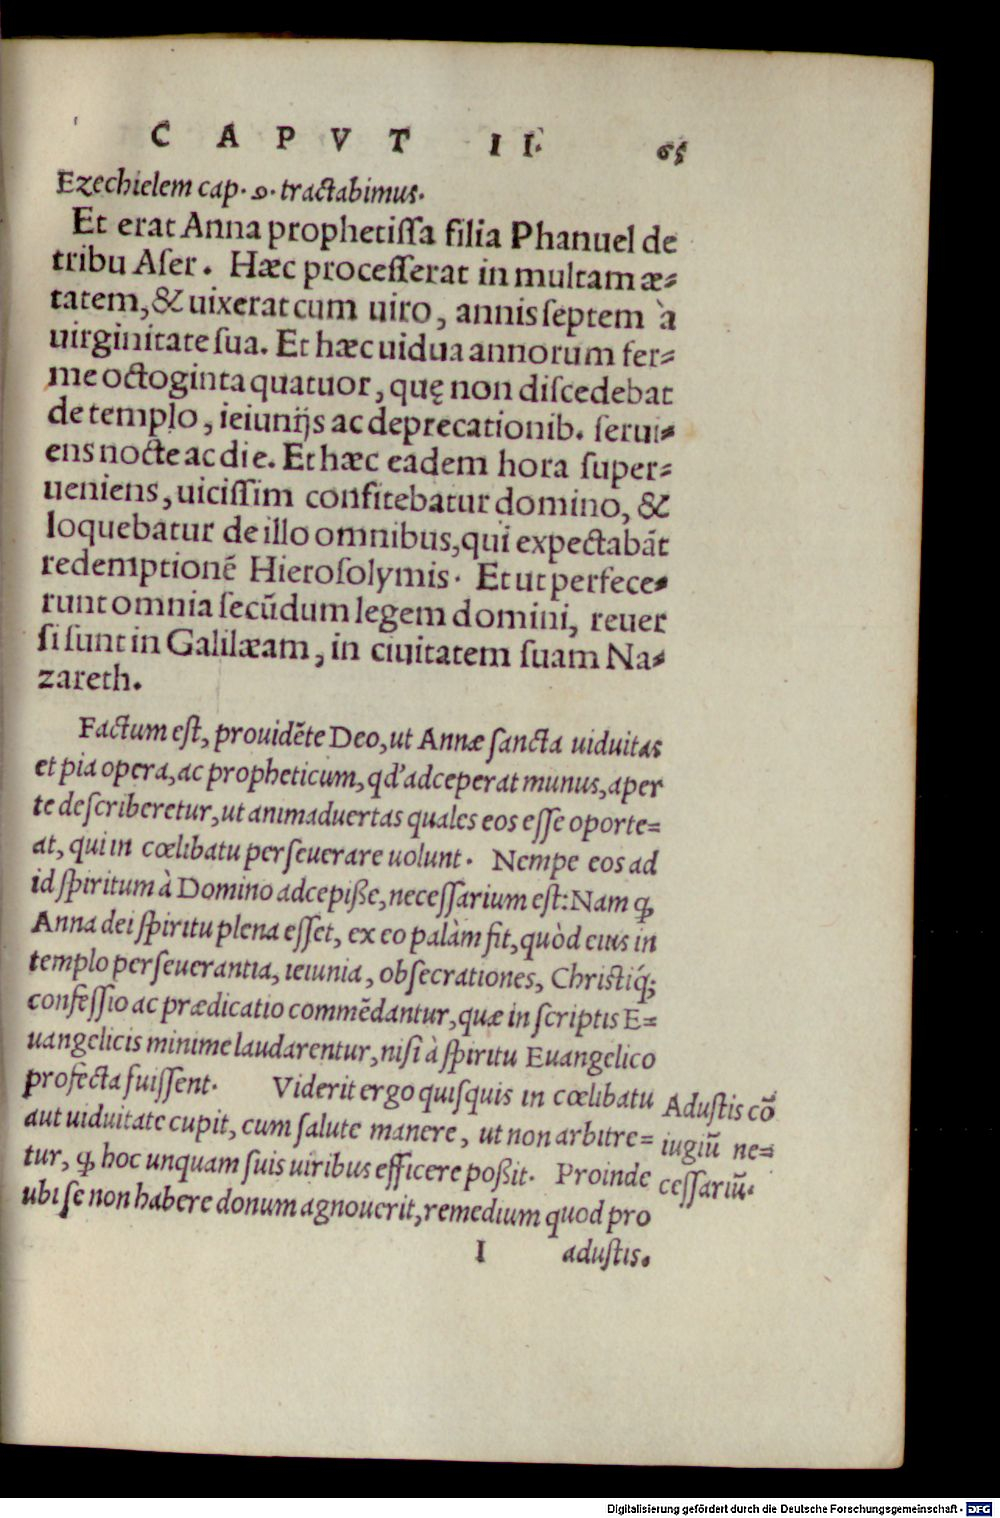 CAPVT II. 65
Ezechielem cap. 9. tractabimus.
Et erat Anna prophetissa filia Phanuel de
tribu Aser. Hæc processerat in multam æ⸗
tatem, & uixerat cum uiro, annis septem à
uirginitate sua. Et hæc uidua annorum fer⸗
me octoginta quatuor, quę non discedebat
de templo, ieiunijs ac deprecationib. serui⸗
ens nocte ac die. Et hæc eadem hora super⸗
ueniens, uicissim confitebatur domino, &
loquebatur de illo omnibus, qui expectabãt
redemptionẽ Hierosolymis. Et ut perfece⸗
runt omnia secũdum legem domini, reuer
si sunt in Galilæam, in ciuitatem suam Na⸗
zareth.
Factum est, prouidẽte Deo, ut Annæ sancta uiduitas
et pia opera, ac propheticum, qd' adceperat munus, aper
te describeretur, ut animaduertas quales eos esse oporte⸗
at, qui in cœlibatu perseuerare uolunt. Nempe eos ad
id spiritum à Domino adcepiße, necessarium est: Nam ꝙ
Anna dei spiritu plena esset, ex eo palàm fit, quòd eius in
templo perseuerantia, ieiunia, obsecrationes, Christiq́;
confessio ac prædicatio commẽdantur, quæ in scriptis E⸗
uangelicis minime laudarentur, nisi à spiritu Euangelico
profecta fuissent. Viderit ergo quisquis in cœlibatu
aut uiduitate cupit, cum salute manere, ut non arbitre⸗
tur, ꝙ hoc unquam suis uiribus efficere poßit. Proinde
ubi se non habere donum agnouerit, remedium quod pro
Adustis cõ
iugiũ ne⸗
cessariũ.
I adustis.
Digitalisierung gefördert durch die Deutsche Forschungsgemeinschaft - DFG